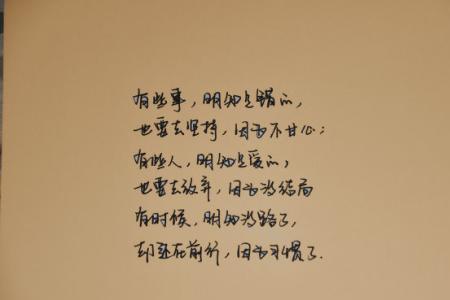 有些事，明知是错的，
也要去坚持，因为不甘心；
有些人，明知是爱的，
也要去放弃，因为没结局
有时候，明知没路了，
却还在前行，因为习惯了.